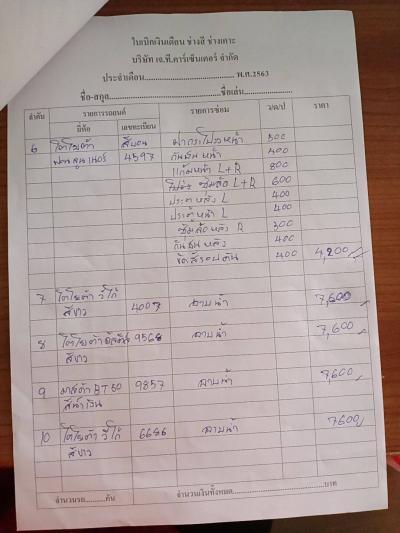 ใบเบิกเงินเดือน ช่างสี ช่างเคาะ
บริษัท เจ.ที.คาร์เซ็นเตอร์ จำกัด
ประจำเดือน.......................... พ.ศ.2563
ชื่อ-สกุล..........................ชื่อเล่น..................
ลำดับ รายการรถยนต์ รายการซ่อม ว/ด/ป ราคา
ยี่ห้อ เลขทะเบียน
6 โตโยต้า ฝากระโปรงหน้า 500
4597 กันชนหน้า 400
แก้มหน้า L+R 800
L+R 600
ประตูหลัง L 400
ประตูหน้า L 400
หลัง R 300
กันชนหลัง 400
ขัดสีรอบคัน 400 4,200
7 โตโยต้า วีโก้ 4007 สาบน้ำ 7,600
สีขาว
8 โตโยต้า 9568 สาบน้ำ 7,600
สีขาว
9 มาสด้า BT50 9857 สาบน้ำ 7,600
สีน้ำเงิน
10 โตโยต้า วีโก้ 6686 สาบน้ำ 7600
สีขาว
จำนวนรถ..........คัน จำนวนเงินทั้งหมด..............................บาท